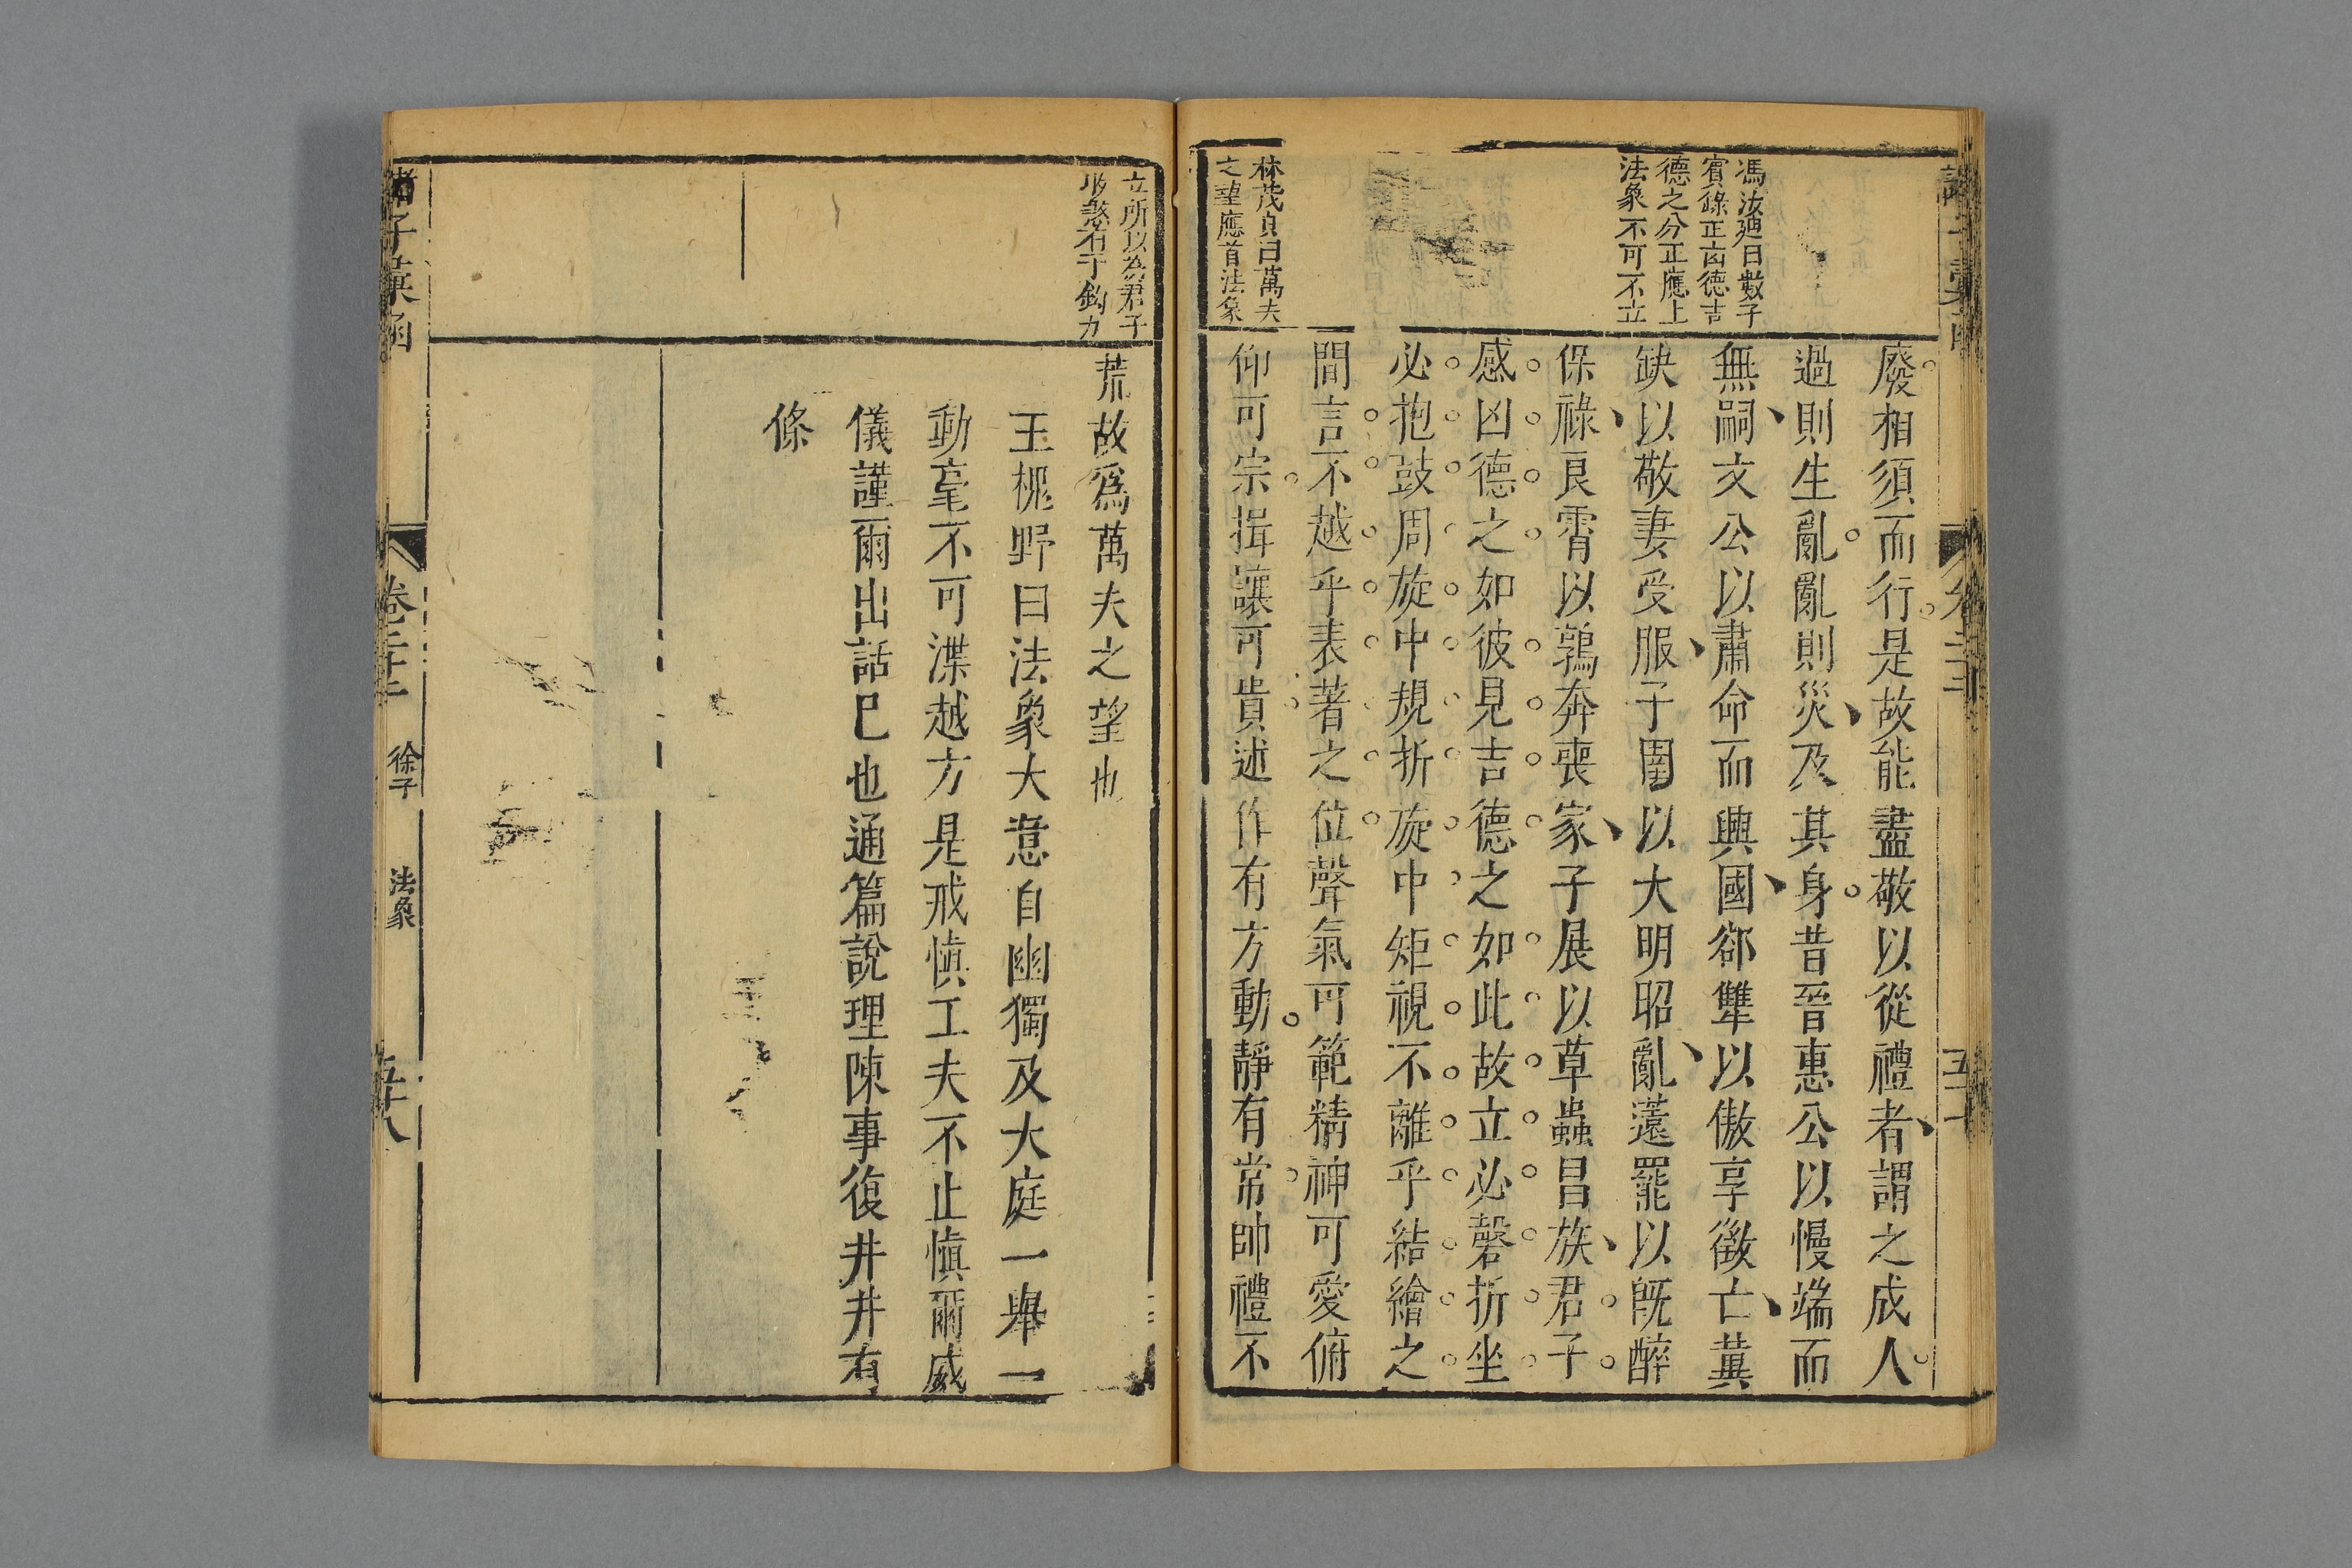 馮汝廸曰數子
實錄正㐫德吉
德之分正應上
法象不可不立
林茂貞曰萬夫
之望應首法象
廢相須而行是故能盡敬以從禮者謂之成人
過則生亂亂則災及其身昔晉惠公以慢端而
無嗣文公以肅命而興國郤犨以傲享徵亡冀
缺以敬妻受服子圍以大明昭亂薳罷以旣醉
保祿良霄以鶉奔喪家子展以草蟲昌族君子
感凶德之如彼見吉德之如此故立必磬折坐
必抱鼓周旋中規折旋中矩視不離乎結繪之
間言不越乎表著之位聲氣可範精神可愛俯
仰可宗揖讓可貴述作有方動靜有常帥禮不
立所以為君子
荒故爲萬夫之望也
王桃野曰法象大意自幽獨及大庭一舉一
動毫不可渫越方是戒慎工夫不止慎爾威
儀謹爾出話巳也通篇說理陳事復井井有
條
諸子彙函
卷三十二
徐子
法象
五十八